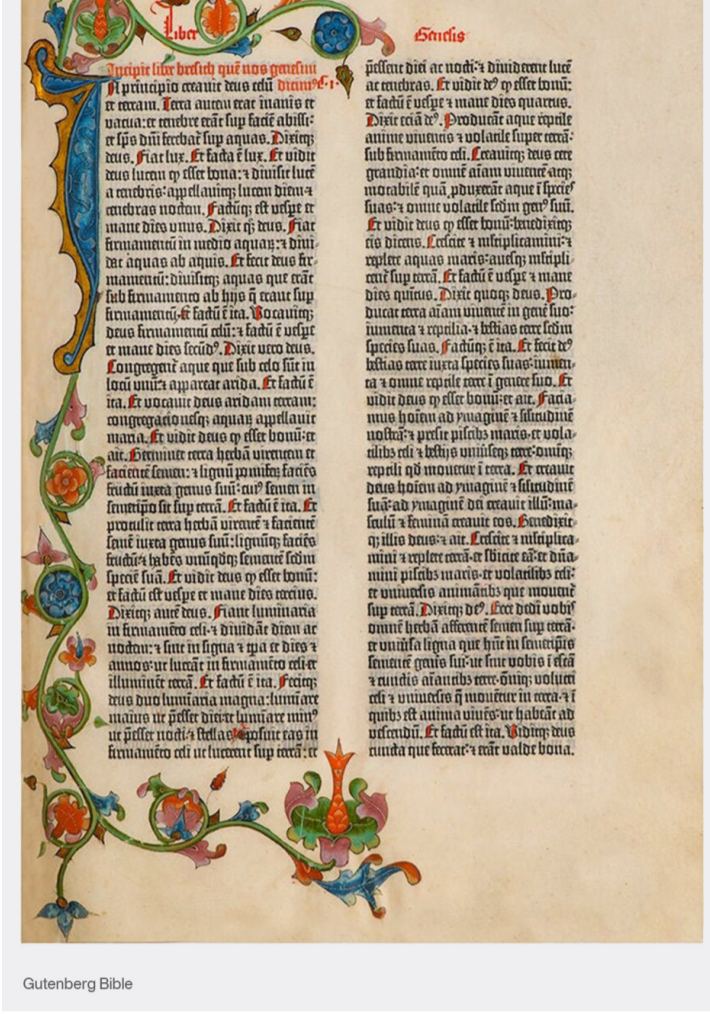 Liber
Genesis
Incipit liber bresich quē nos genesim
dicimꝰ. c. 1.
In principio creavit deus celū
et terram. Terra autem erat inanis et
vacua: et tenebre erāt sup faciē abissi:
et spūs dñi ferebat̄ sup aquas. Dixitqꝫ
deus. Fiat lux. Et facta ē lux. Et vidit
deus lucem ꝙ esset bona: ⁊ divisit lucē
a tenebris: appellavitqꝫ lucem diem ⁊
tenebras noctem. Factūqꝫ est vespe et
mane dies unus. Dixit qꝫ deus. Fiat
firmamentū in medio aquaꝝ: ⁊ divi-
dat aquas ab aquis. Et fecit deus fir-
mamentū: divisitqꝫ aquas que erāt
sub firmamento ab hijs q̄ erant sup
firmamentū. Et factū ē ita. Vocavitqꝫ
deus firmamentū celū: ⁊ factū ē vespe
et mane dies secūdꝰ. Dixit vero deus.
Congregent̄ aque que sub celo sūt in
locū unū: ⁊ appareat arida. Et factū ē
ita. Et vocavit deus aridam terram:
congregacionesqꝫ aquaꝝ appellavit
maria. Et vidit deus ꝙ esset bonū: et
ait. Germinet terra herbā virentem et
facientē semen: ⁊ lignū pomiferꝝ faciēs
fructū iuxta genus suū: cuiꝰ semen in
semetipso sit sup terrā. Et factū ē ita. Et
protulit terra herbā virentē ⁊ facientē
semē iuxta genus suū: lignūqꝫ faciēs
fructū ⁊ habēs unūqdqꝫ sementē scdm
speciē suā. Et vidit deus ꝙ esset bonū:
et factū est vespe et mane dies tercius.
Dixitqꝫ autē deus. Fiant luminaria
in firmamēto celi. ⁊ dividāt diem ac
noctem: ⁊ sint in signa ⁊ tpa et dies ⁊
annos: ut luceāt in firmamēto celi et
illuminēt terrā. Et factū ē ita. Fecitqꝫ
deus duo lumīaria magna: lumīare
maius ut p̄esset diei et lumīare minꝰ
ut p̄esset nocti: ⁊ stellas. ⁊ posuit eas in
firmamēto celi ut lucerent sup terrā: et
p̄essent diei ac nocti: ⁊ dividerent lucē
ac tenebras. Et vidit deꝰ ꝙ esset bonū:
et factū ē vespe ⁊ mane dies quartus.
Dixit eciā deꝰ. Producāt aque reptile
anime viventis ⁊ volatile super terrā:
sub firmamēto celi. Creavitqꝫ deus cete
grandia: et omnē aīam viventē atqꝫ
motabilē quā ꝓduxerāt aque ī species
suas: ⁊ omne volatile scdm genꝰ suū.
Et vidit deus ꝙ esset bonū: benedixitqꝫ
eis dicens. Crescite ⁊ mltiplicamini: ⁊
replete aquas maris: avesqꝫ mltipli-
cent̄ sup terrā. Et factū ē vespe ⁊ mane
dies quītus. Dixit quoqꝫ deus. Pro-
ducat terra aīam viventem in genē suo:
iumenta ⁊ reptilia. ⁊ bestias terre scdm
species suas. Factūqꝫ ē ita. Et fecit deꝰ
bestias terre iuxta species suas: iumen-
ta ⁊ omne reptile terre ī genere suo. Et
vidit deus ꝙ esset bonū: et ait. Facia-
mus hoīem ad ymaginē ⁊ silitudinē
nostrā: ⁊ presit piscibꝫ maris. et vola-
tilibꝫ celi ⁊ bestijs univseqꝫ terre: omīqꝫ
reptili qd movetur ī terra. Et creavit
deus hoīem ad ymaginē ⁊ silitudinē
suā: ad ymaginē dei creavit illū: ma-
sculū ⁊ feminā creavit eos. Benedixit-
qꝫ illis deus: ⁊ ait. Crescite ⁊ mltiplica-
mini ⁊ replete terrā. et sbicite eā: et dn̄a-
mini piscibꝫ maris. et volatilibꝫ celi:
et universis animātibꝫ que movent̄
sup terrā. Dixitqꝫ deꝰ. Ecce dedi vobis
omnē herbā afferentē semen sup terrā.
et univsa ligna que hn̄t in semetip̄is
sementē genis sui: ut sint vobis ī escā
⁊ cunctis aīantibꝫ terre. oīniqꝫ volucri
celi ⁊ universis q̄ movētur in terra. ⁊ ī
quibꝫ est anima vivēs: ut habeāt ad
vescendū. Et factū est ita. Viditqꝫ deus
cuncta que fecerat: ⁊ erāt valde bona.
Gutenberg Bible